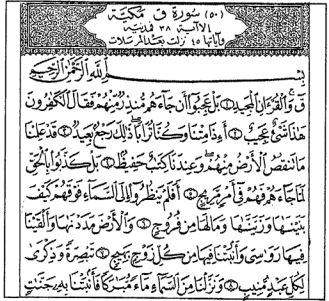 (٥٠) سورة ق مكية
إلا آية ٣٨ فمدنية
وآياتها ٤٥ نزلت بعد المرسلات
بِسْمِ اللَّهِ الرَّحْمَٰنِ الرَّحِيمِ
قٓ وَالْقُرْءَانِ الْمَجِيدِ ١ بَلْ عَجِبُوٓا۟ أَن جَآءَهُم مُّنذِرٌ مِّنْهُمْ فَقَالَ الْكَٰفِرُونَ
هَٰذَا شَىْءٌ عَجِيبٌ ٢ أَءِذَا مِتْنَا وَكُنَّا تُرَابًا ذَٰلِكَ رَجْعٌۢ بَعِيدٌ ٣ قَدْ عَلِمْنَا
مَا تَنقُصُ الْأَرْضُ مِنْهُمْ وَعِندَنَا كِتَٰبٌ حَفِيظٌۢ ٤ بَلْ كَذَّبُوا۟ بِالْحَقِّ
لَمَّا جَآءَهُمْ فَهُمْ فِىٓ أَمْرٍ مَّرِيجٍ ٥ أَفَلَمْ يَنظُرُوٓا۟ إِلَى السَّمَآءِ فَوْقَهُمْ كَيْفَ
بَنَيْنَٰهَا وَزَيَّنَّٰهَا وَمَا لَهَا مِن فُرُوجٍ ٦ وَالْأَرْضَ مَدَدْنَٰهَا وَأَلْقَيْنَا
فِيهَا رَوَٰسِىَ وَأَنۢبَتْنَا فِيهَا مِن كُلِّ زَوْجٍۭ بَهِيجٍ ٧ تَبْصِرَةً وَذِكْرَىٰ
لِكُلِّ عَبْدٍ مُّنِيبٍ ٨ وَنَزَّلْنَا مِنَ السَّمَآءِ مَآءً مُّبَٰرَكًا فَأَنۢبَتْنَا بِهِۦ جَنَّٰتٍ